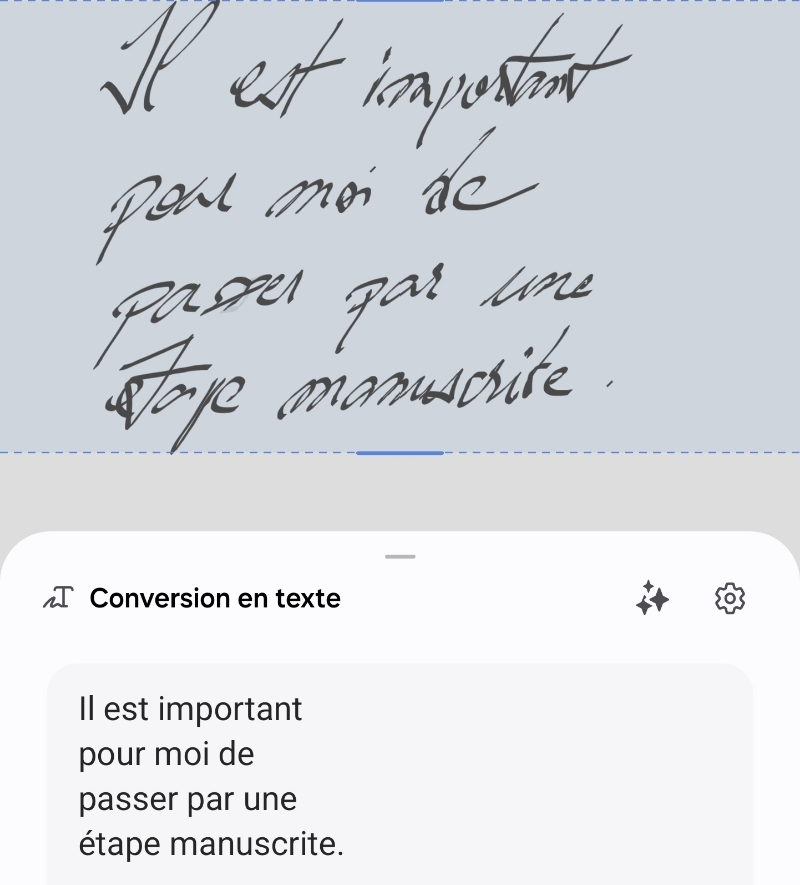 Il est important
pour moi de
passer par une
étape manuscrite.
Conversion en texte
Il est important
pour moi de
passer par une
étape manuscrite.